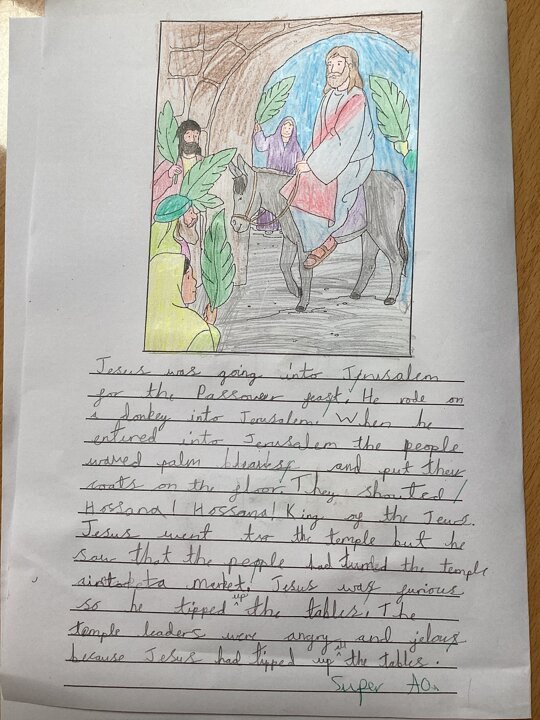 Jesus was going into Jerusalem
for the Passover feast. He rode on
a donkey into Jerusalem. When he
entured into Jerusalem the people
waved palm and put they
coats on the floor. They shouted
Hossana! Hossana! King of the Jews.
Jesus went the temple but he
saw that the people had turned the temple
a market. Jesus was furious
so he tipped up the tables. The
temple leaders were angry and jelous
because Jesus had tipped up all the tables.
Super